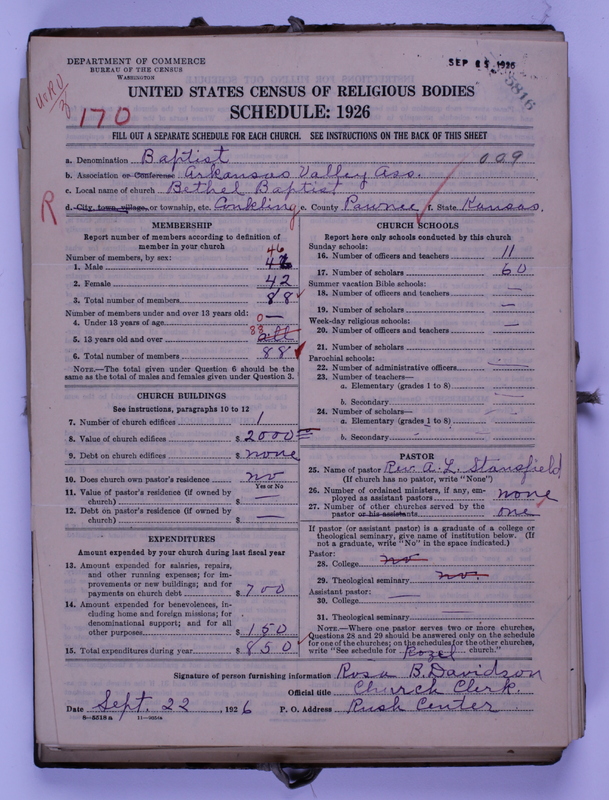 DEPARTMENT OF COMMERCE
BUREAU OF THE CENSUS
WASHINGTON
SEP 25 1926
5816
UNITED STATES CENSUS OF RELIGIOUS BODIES
170
SCHEDULE: 1926
FILL OUT A SEPARATE SCHEDULE FOR EACH CHURCH. SEE INSTRUCTIONS ON THE BACK OF THIS SHEET
a. Denomination Baptist 009
b. Association or Conference Arkansas Valley Ass.
c. Local name of church Bethel Baptist
R d. City, town, village, or township, etc. Conkling e. County Pawnee f. State Kansas.
MEMBERSHIP
Report number of members according to definition of
member in your church
Number of members, by sex:
46
1. Male
2. Female 42
3. Total number of members 88
Number of members under and over 13 years old:
4. Under 13 years of age 0 —
5. 13 years old and over 88 all
6. Total number of members 88
NOTE.—The total given under Question 6 should be the
same as the total of males and females given under Question 3.
CHURCH BUILDINGS
See instructions, paragraphs 10 to 12
7. Number of church edifices 1
8. Value of church edifices $ 2000
9. Debt on church edifices $ none
10. Does church own pastor's residence no
Yes or No
11. Value of pastor's residence (if owned by
church) $ —
12. Debt on pastor's residence (if owned by
church) $ —
EXPENDITURES
Amount expended by your church during last fiscal year
13. Amount expended for salaries, repairs,
and other running expenses; for im-
provements or new buildings; and for
payments on church debt $ 700
14. Amount expended for benevolences, in-
cluding home and foreign missions; for
denominational support; and for all
other purposes $ 150
15. Total expenditures during year $ 850
CHURCH SCHOOLS
Report here only schools conducted by this church
Sunday schools:
16. Number of officers and teachers 11
17. Number of scholars 60
Summer vacation Bible schools:
18. Number of officers and teachers —
19. Number of scholars —
Week-day religious schools:
20. Number of officers and teachers —
21. Number of scholars —
Parochial schools:
22. Number of administrative officers —
23. Number of teachers—
a. Elementary (grades 1 to 8) —
b. Secondary —
24. Number of scholars—
a. Elementary (grades 1 to 8) —
b. Secondary —
PASTOR
25. Name of pastor Rev. A. L. Stansfield
(If church has no pastor, write "None")
26. Number of ordained ministers, if any, em-
ployed as assistant pastors none
27. Number of other churches served by the
pastor or his assistants one
If pastor (or assistant pastor) is a graduate of a college or
theological seminary, give name of institution below. (If
not a graduate, write "No" in the space indicated.)
Pastor:
28. College no
29. Theological seminary no.
Assistant pastor:
30. College —
31. Theological seminary —
NOTE.—Where one pastor serves two or more churches,
Questions 28 and 29 should be answered only on the schedule
for one of the churches; on the schedules for the other churches,
write "See schedule for Rozel church."
Signature of person furnishing information Rosa B. Davidson
Official title Church Clerk.
Date Sept. 22, 1926 P. O. Address Rush Center